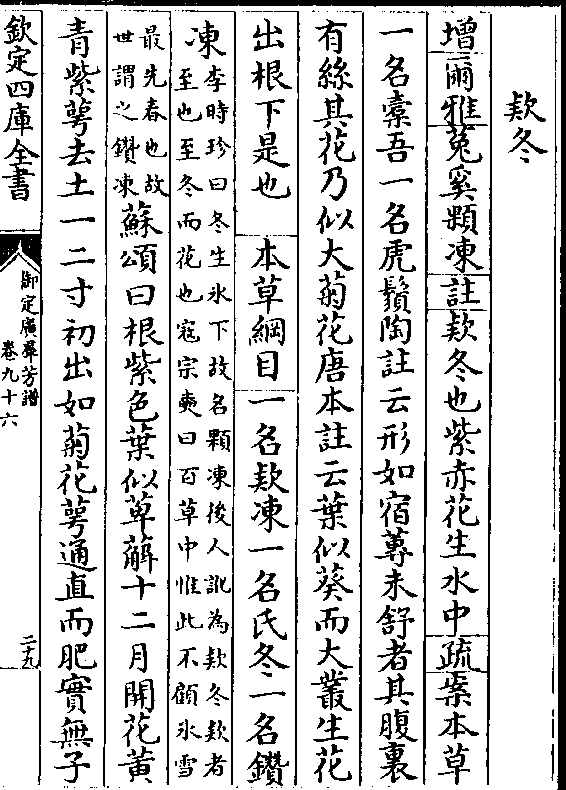 欵冬
增爾雅菟奚顆凍註欵冬也紫赤花生水中疏案本草
一名橐吾一名虎鬚陶註云形如宿蓴未舒者其腹裏
有絲其花乃似大菊花唐本註云葉似葵而大叢生花
出根下是也　本草綱目一名欵凍一名氏冬一名鑽
凍李時珍曰冬生氷下故名顆凍後人訛為欵冬欵者
至也至冬而花也宼宗奭曰百草中惟此不顧氷雪
最先春也故
世謂之鑽凍
蘇頌曰根紫色葉似萆薢十二月開花黄
青紫萼去土一二寸初出如菊花萼通直而肥實無子
欽定四庫全書
御定廣羣芳譜
卷九十六
二十九